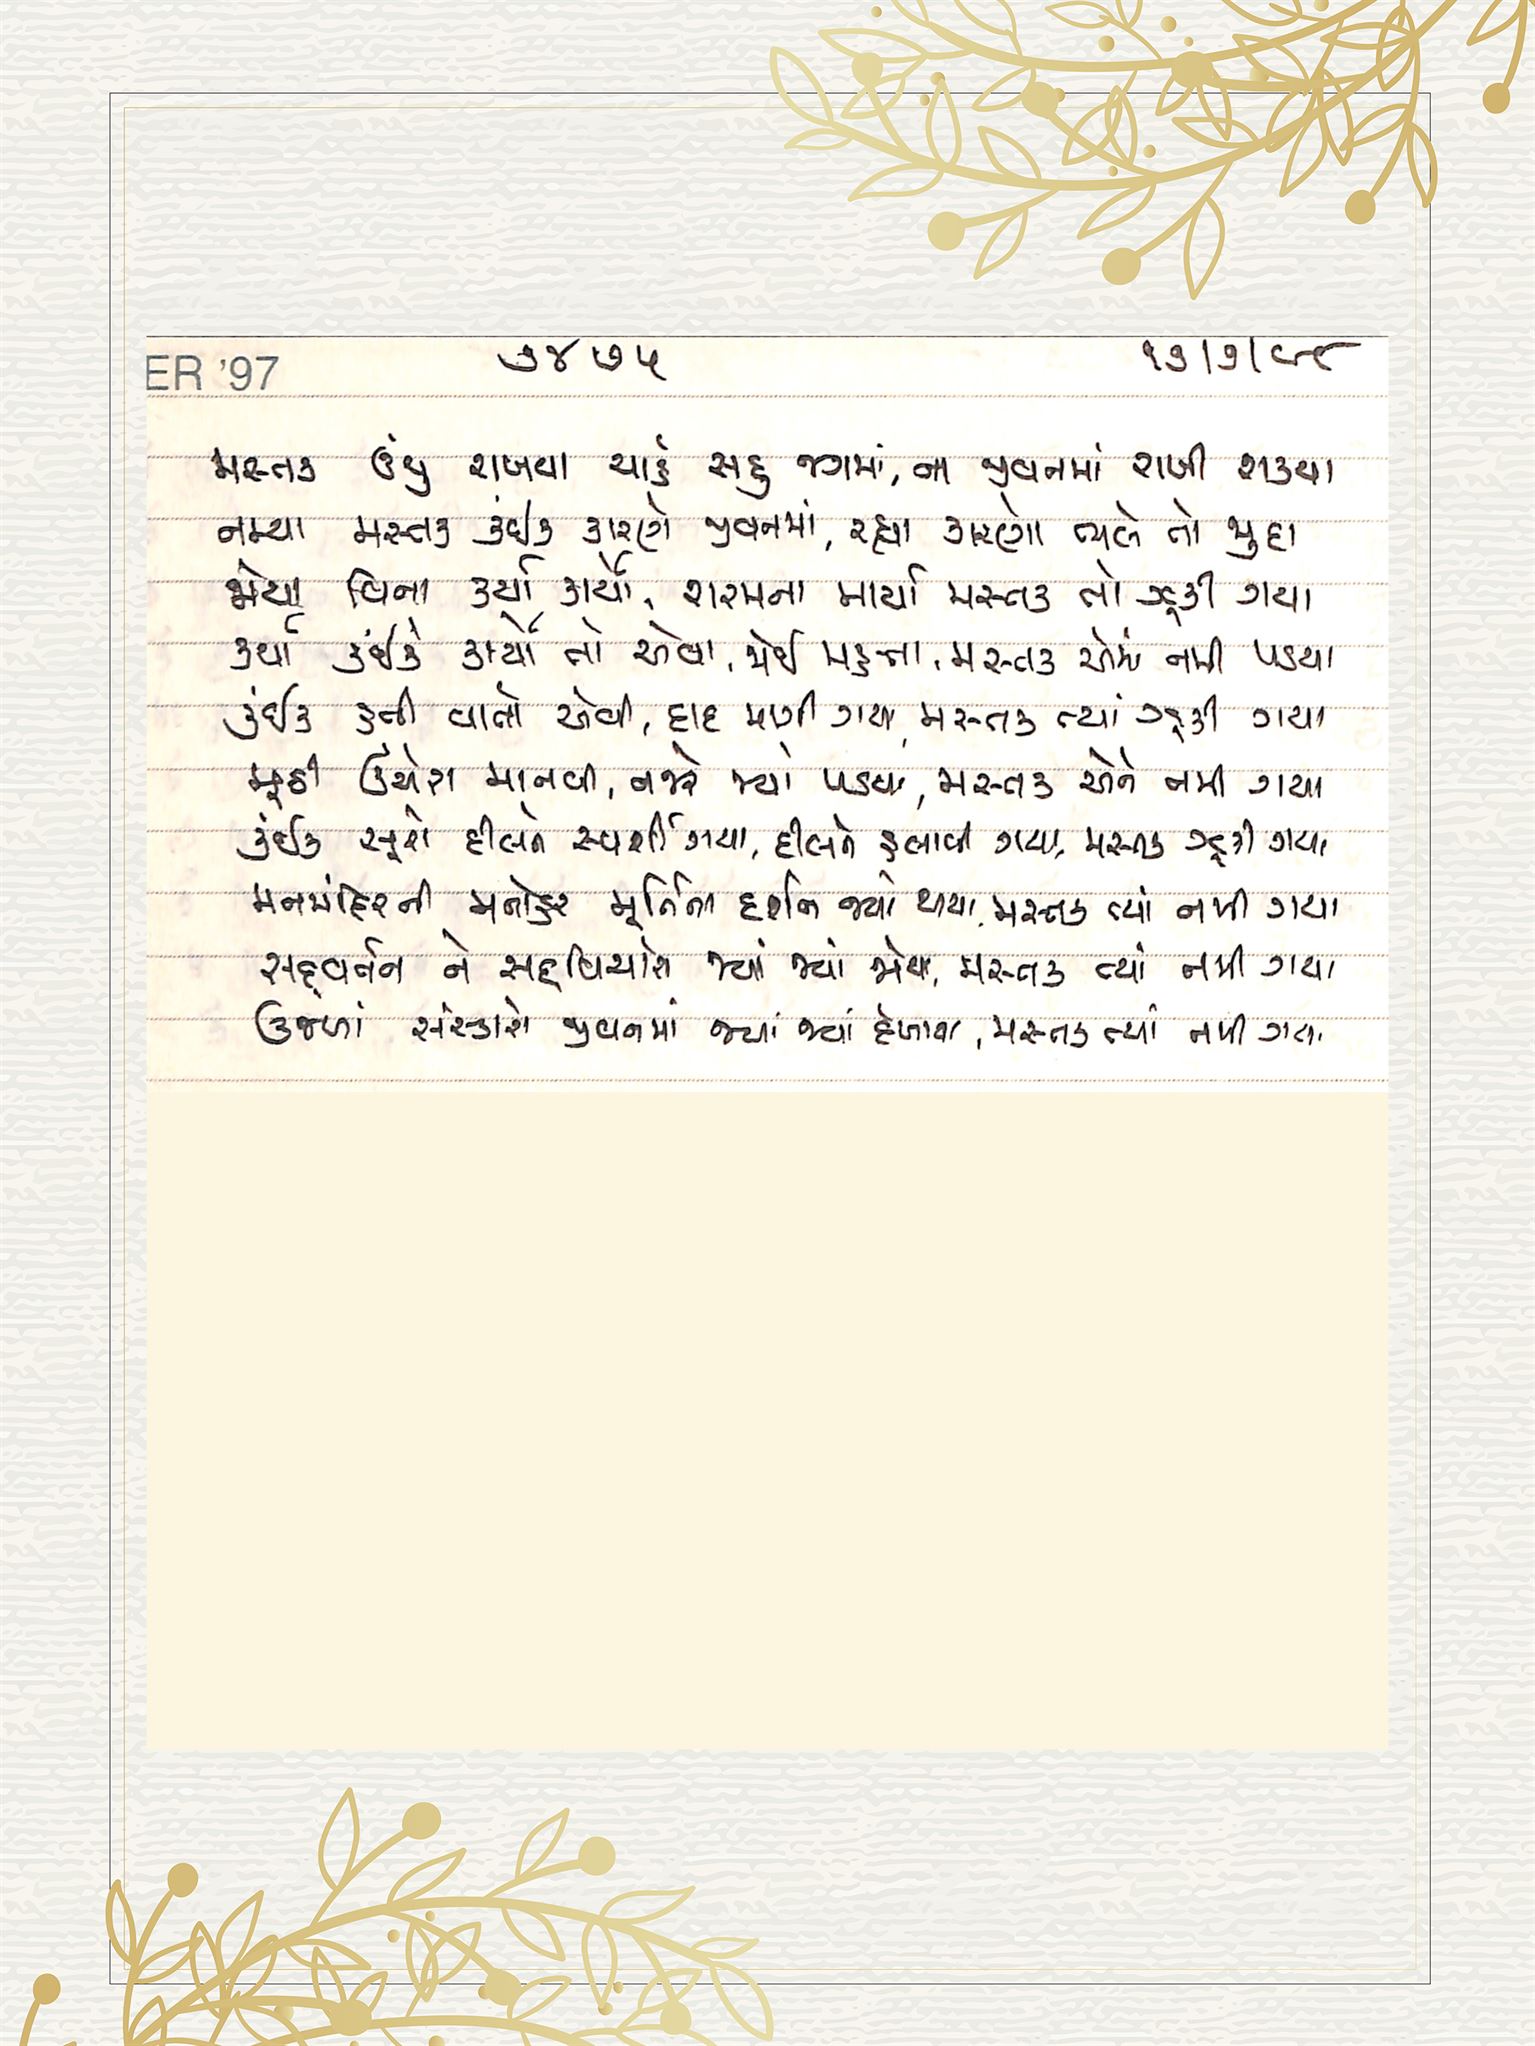 ER '97 ૭૪૭૫ ૧૭/૭/૯૮
મસ્તક ઉંચુ રાખવા ચાહે સહુ જગમાં, ના જીવનમાં રાખી શક્યા
નમ્યા મસ્તક કંઈક કારણે જીવનમાં, રહ્યા કારણો ભલે તો જુદા
જોયા વિના કર્યા કાર્યો, શરમના માર્યા મસ્તક તો ઝૂકી ગયા
કર્યા કંઈકે કાર્યો તો એવા, જોઈ મહત્તા, મસ્તક એમાં નમી પડયા
કંઈક હતી વાતો એવી, દાદ મળી ગયા, મસ્તક ત્યાં ઝૂકી ગયા
મૂઠી ઉંચેરા માનવી, નજરે જ્યાં પડયા, મસ્તક એને નમી ગયા
કંઈક સૂરો દીલને સ્પર્શી ગયા, દીલને હલાવી ગયા, મસ્તક ઝૂકી ગયા
મનમંદિરની મનોહર મૂર્તિના દર્શન જ્યાં થાયા, મસ્તક ત્યાં નમી ગયા
સદ્વર્તન ને સદ્વિચારો જ્યાં જ્યાં જોયા, મસ્તક ત્યાં નમી ગયા
ઉજળાં સંસ્કારો જીવનમાં જ્યાં જ્યાં દેખાયા, મસ્તક ત્યાં નમી ગયા